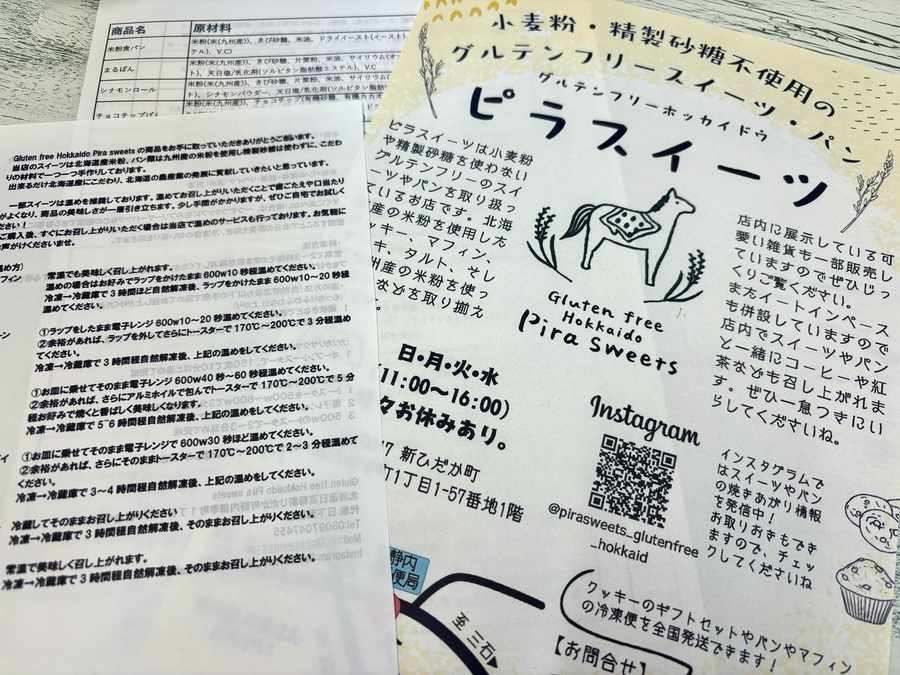 商品名 原材料
米粉食パン 米粉(米(九州産))、きび砂糖、米油、ドライイースト(イースト)
テル)、V.C
まるぱん 米粉(米(九州産))、きび砂糖、片栗粉、米油、サイリウム(オ
ト)、天日塩/乳化剤(ソルビタン脂肪酸エステル)、V.C
シナモンロール 米粉(米(九州産))、きび砂糖、片栗粉、米油、サイリウム
ト)、シナモンパウダー、天日塩/乳化剤(ソルビタン脂肪
チョコチップぱん 米粉(米(九州産))、チョコチップ(有機砂糖、有機カカオ
Gluten free Hokkaido Pira sweets の商品をお手に取っていただきありがとうございます。
当店のスイーツは北海道産米粉、パン類は九州産の米粉を使用し精製砂糖は使わずに、こだわ
りの材料で一つ一つ手作りしております。
出来るだけ北海道産にこだわり、北海道の農産業の発展に貢献していきたいと思っています。
一部スイーツは温めを推奨しております。温めてお召し上がりいただくことで歯ごたえや口当たり
がよくなり、商品の美味しさが一層引き立ちます。少し手間がかかりますが、ぜひご自宅でお試しく
ださい!
ご購入後、すぐにお召し上がりいただく場合は当店で温めのサービスも行っております。お気軽に
声がけくださいませ。
温め方)
フィン 常温でも美味しく召し上がれます。
温めの場合はお好みでラップをかけたまま 600w10 秒程温めてください。
冷凍→冷蔵庫で 3 時間ほど自然解凍後、ラップをかけたまま 600w10~20 秒程
温めてください。
①ラップをしたまま電子レンジ 600w10~20 秒温めてください。
②余裕があれば、ラップを外してさらにトースターで 170℃~200℃で 3 分程温め
てください。
冷凍→冷蔵庫で 3 時間程自然解凍後、上記の温めをしてください。
①お皿に乗せてそのまま電子レンジ 600w40 秒~60 秒程温めてください。
②余裕があれば、さらにアルミホイルで包んでトースターで 170℃~200℃で 5 分
程お好みで焼くと香ばしく美味しくなります。
冷凍→冷蔵庫で 5~6 時間程自然解凍後、上記の温めをしてください。
①お皿に乗せてそのまま電子レンジで 600w30 秒ほど温めてください。
②余裕があれば、さらにそのままトースターで 170℃~200℃で 2~3 分程温めて
ください。
冷凍→冷蔵庫で 3~4 時間程自然解凍後、上記の温めをしてください。
冷蔵してそのままお召し上がりください
冷凍→冷蔵庫で 3 時間程自然解凍後、そのままお召し上がりください。
常温で美味しく召し上がれます。
冷凍→冷蔵庫で 3 時間程自然解凍後、そのままお召し上がりください。
小麦粉・精製砂糖不使用の
グルテンフリースイーツ・パン
グルテンフリーホッカイドウ
ピラスイーツ
ピラスイーツは小麦粉
や精製砂糖を使わない
グルテンフリーのスイ
ーツやパンを取り扱っ
ているお店です。北海
産の米粉を使用した
ッキー、マフィン、
、タルト、そし
州産の米粉を使っ
などを取り揃え
す。
Gluten free
Hokkaido
Pira sweets
店内に展示している可
愛い雑貨も一部販売し
ていますのでぜひじっ
くりご覧ください。
またイートインスペース
も併設していますので
店内でスイーツやパン
と一緒にコーヒーや紅
茶なども召し上がれま
す。ぜひ一息つきにい
らしてくださいね。
日・月・火・水
(11:00~16:00)
々お休みあり。
7 新ひだか町
町1丁目1-57番地1階
Instagram
@pirasweets_glutenfree
_hokkaid
インスタグラムで
はスイーツやパン
の焼きあがり情報
を発信中!
お取りおきもでき
ますので、チェッ
クしてくださいね
静内
便局
至 三石
クッキーのギフトセットやパンやマフィン
の冷凍便を全国発送できます!
【お問合せ】